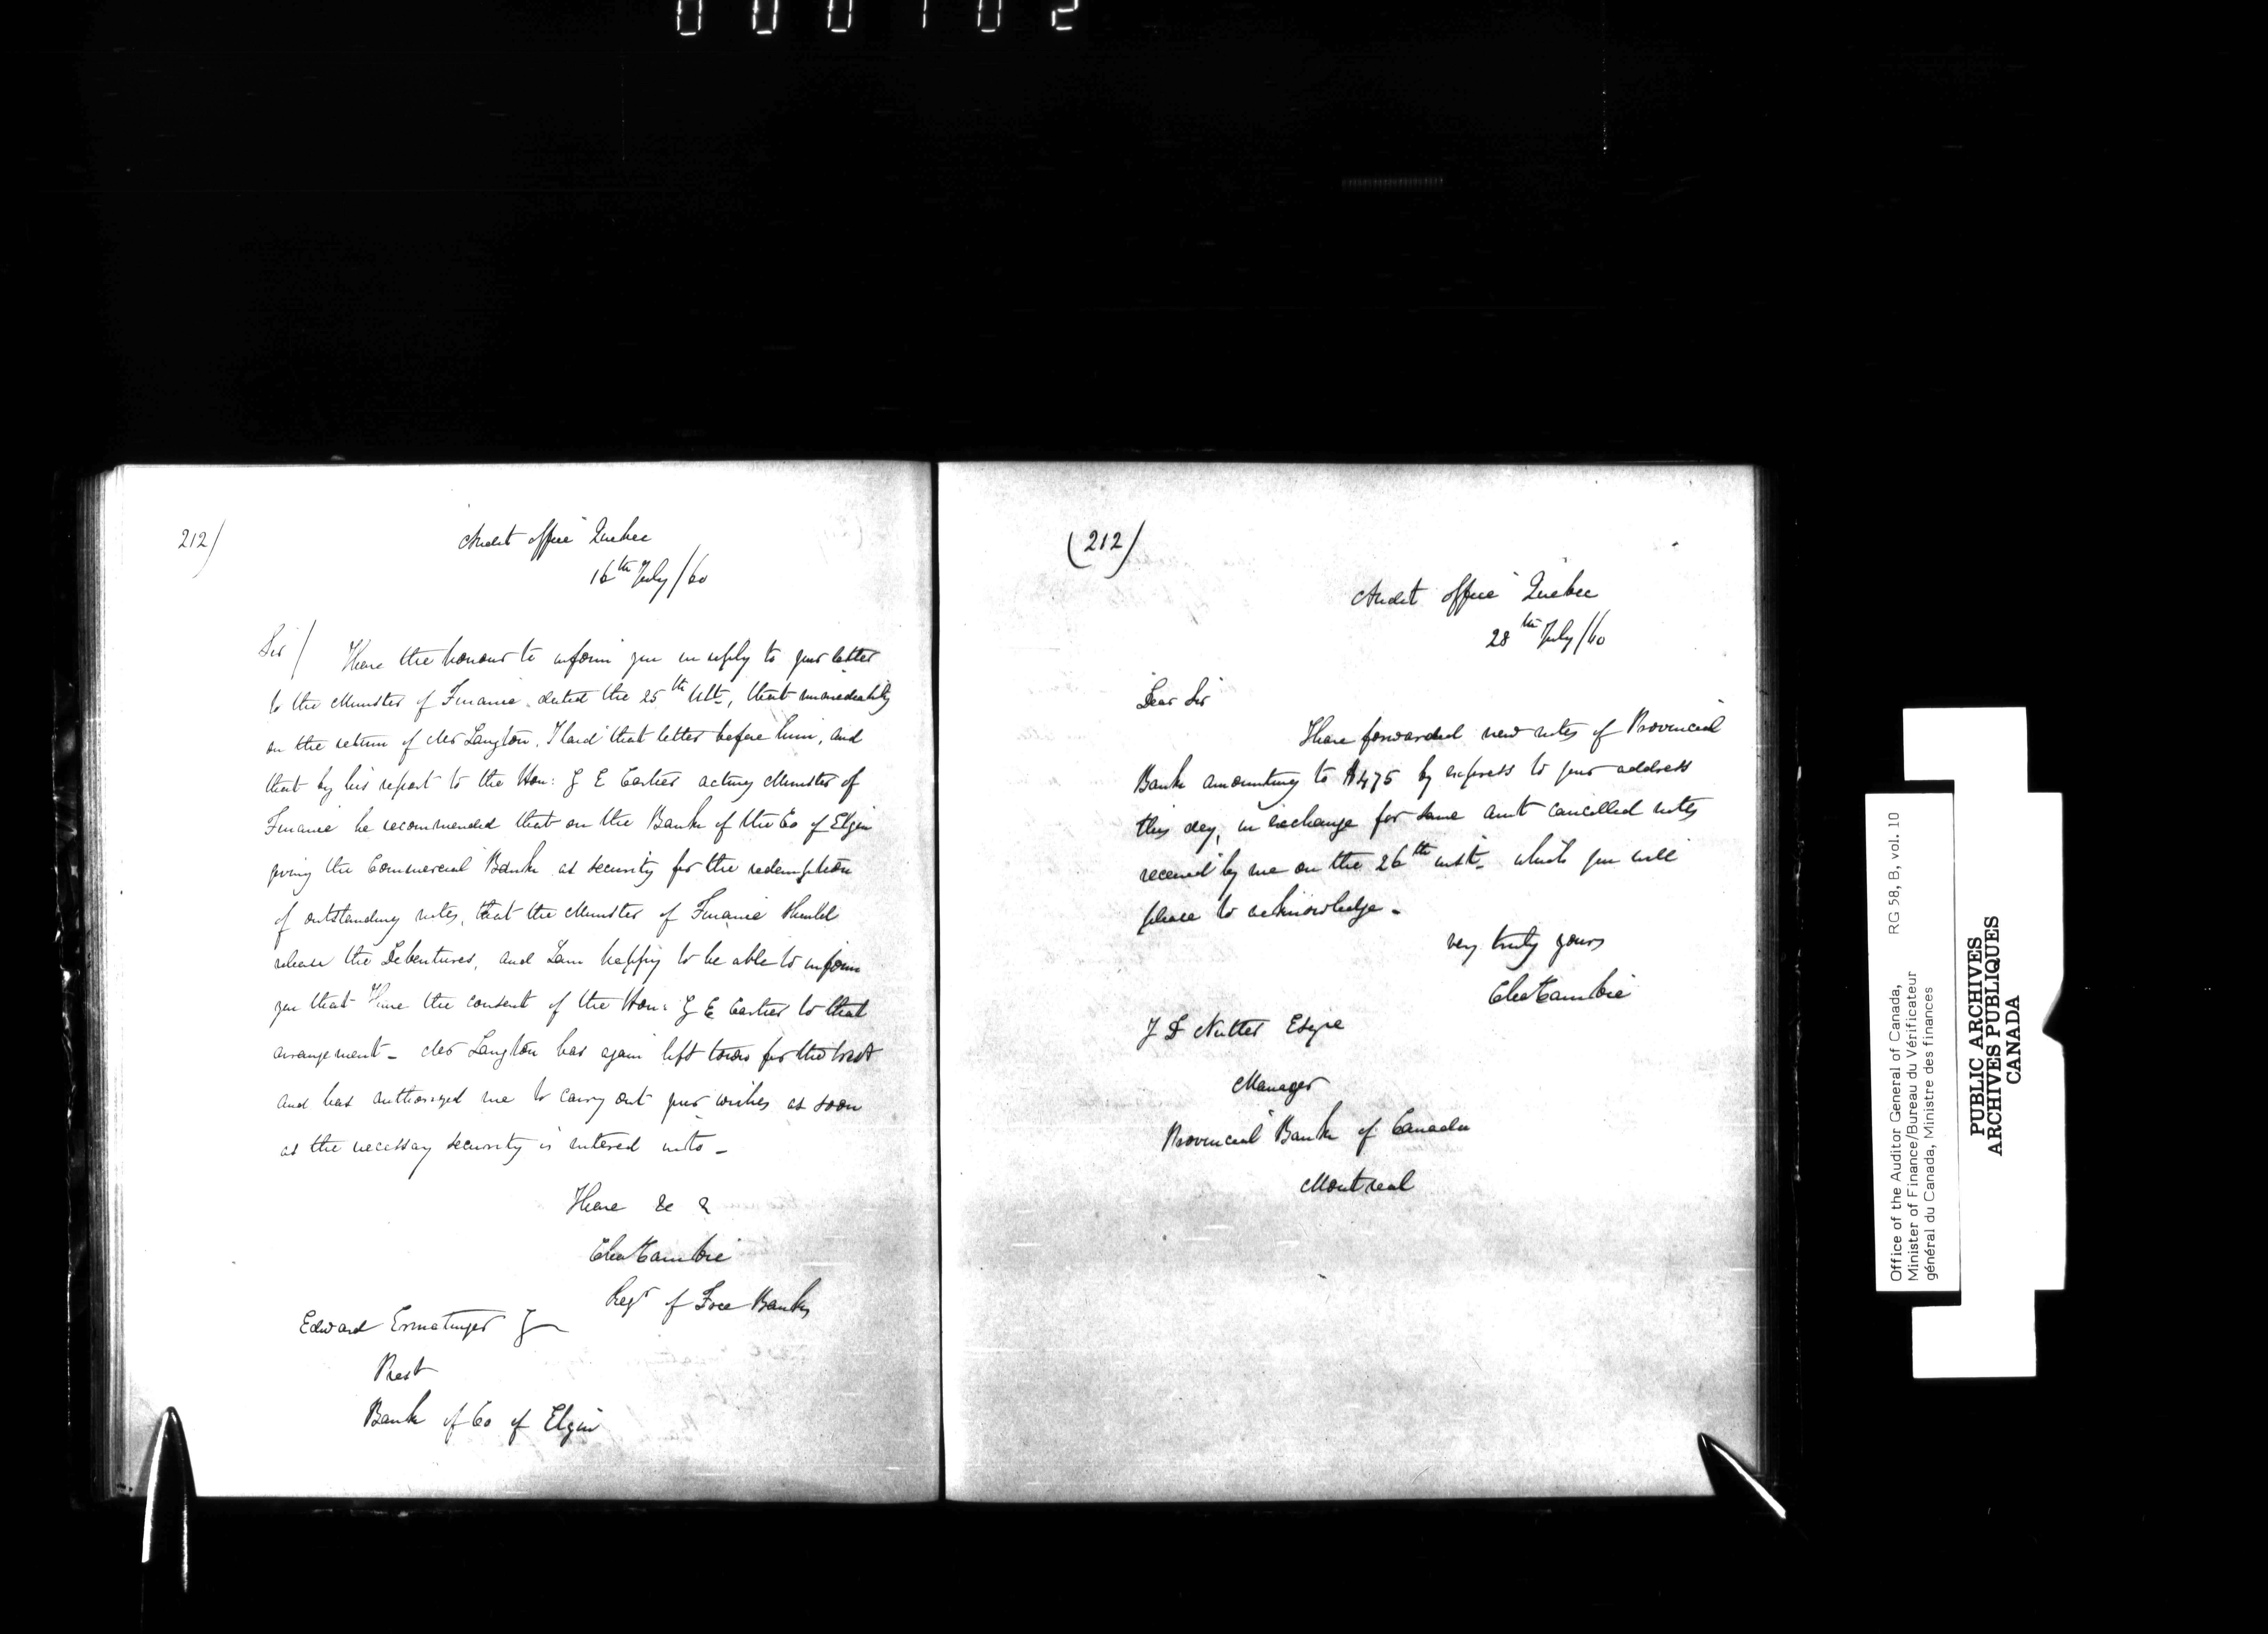 000102
212/
Audit office Quebec
16th July/60
Sir/ I have the honour to inform you in reply to your letter
to the Minister of Finance dated the 25th Ulto, that immediately
on the return of Mr Langton, I laid that letter before him, and
that by his report to the Hon: G E Cartier acting Minister of
Finance he recommended that on the Bank of the Co of Elgin
giving the Commercial Bank as security for the redemption
of outstanding notes, that the Minister of Finance should
release the Debentures, and I am happy to be able to inform
you that I have the consent of the Hon: G E Cartier to that
arrangement - Mr Langton has again left town for the West
and has authorized me to carry out your wishes as soon
as the necessary security is entered into -
I have &c &
Chas Cambie
Regr of Free Banks
Edward Ermatinger
Prest
Bank of Co of Elgin
(212/
Audit office Quebec
28th July/60
Dear Sir
I have forwarded new notes of Provincial
Bank amounting to $475 by express to your address
this day, in exchange for same amt cancelled notes
received by me on the 26th inst. which you will
please to acknowledge -
very truly yours
Chas Cambie
J D Nutter Esqre
Manager
Provincial Bank of Canada
Montreal
Office of the Auditor General of Canada,
Minister of Finance/Bureau du Vérificateur
général du Canada, Ministre des finances
RG 58, B, vol. 10
PUBLIC ARCHIVES
ARCHIVES PUBLIQUES
CANADA